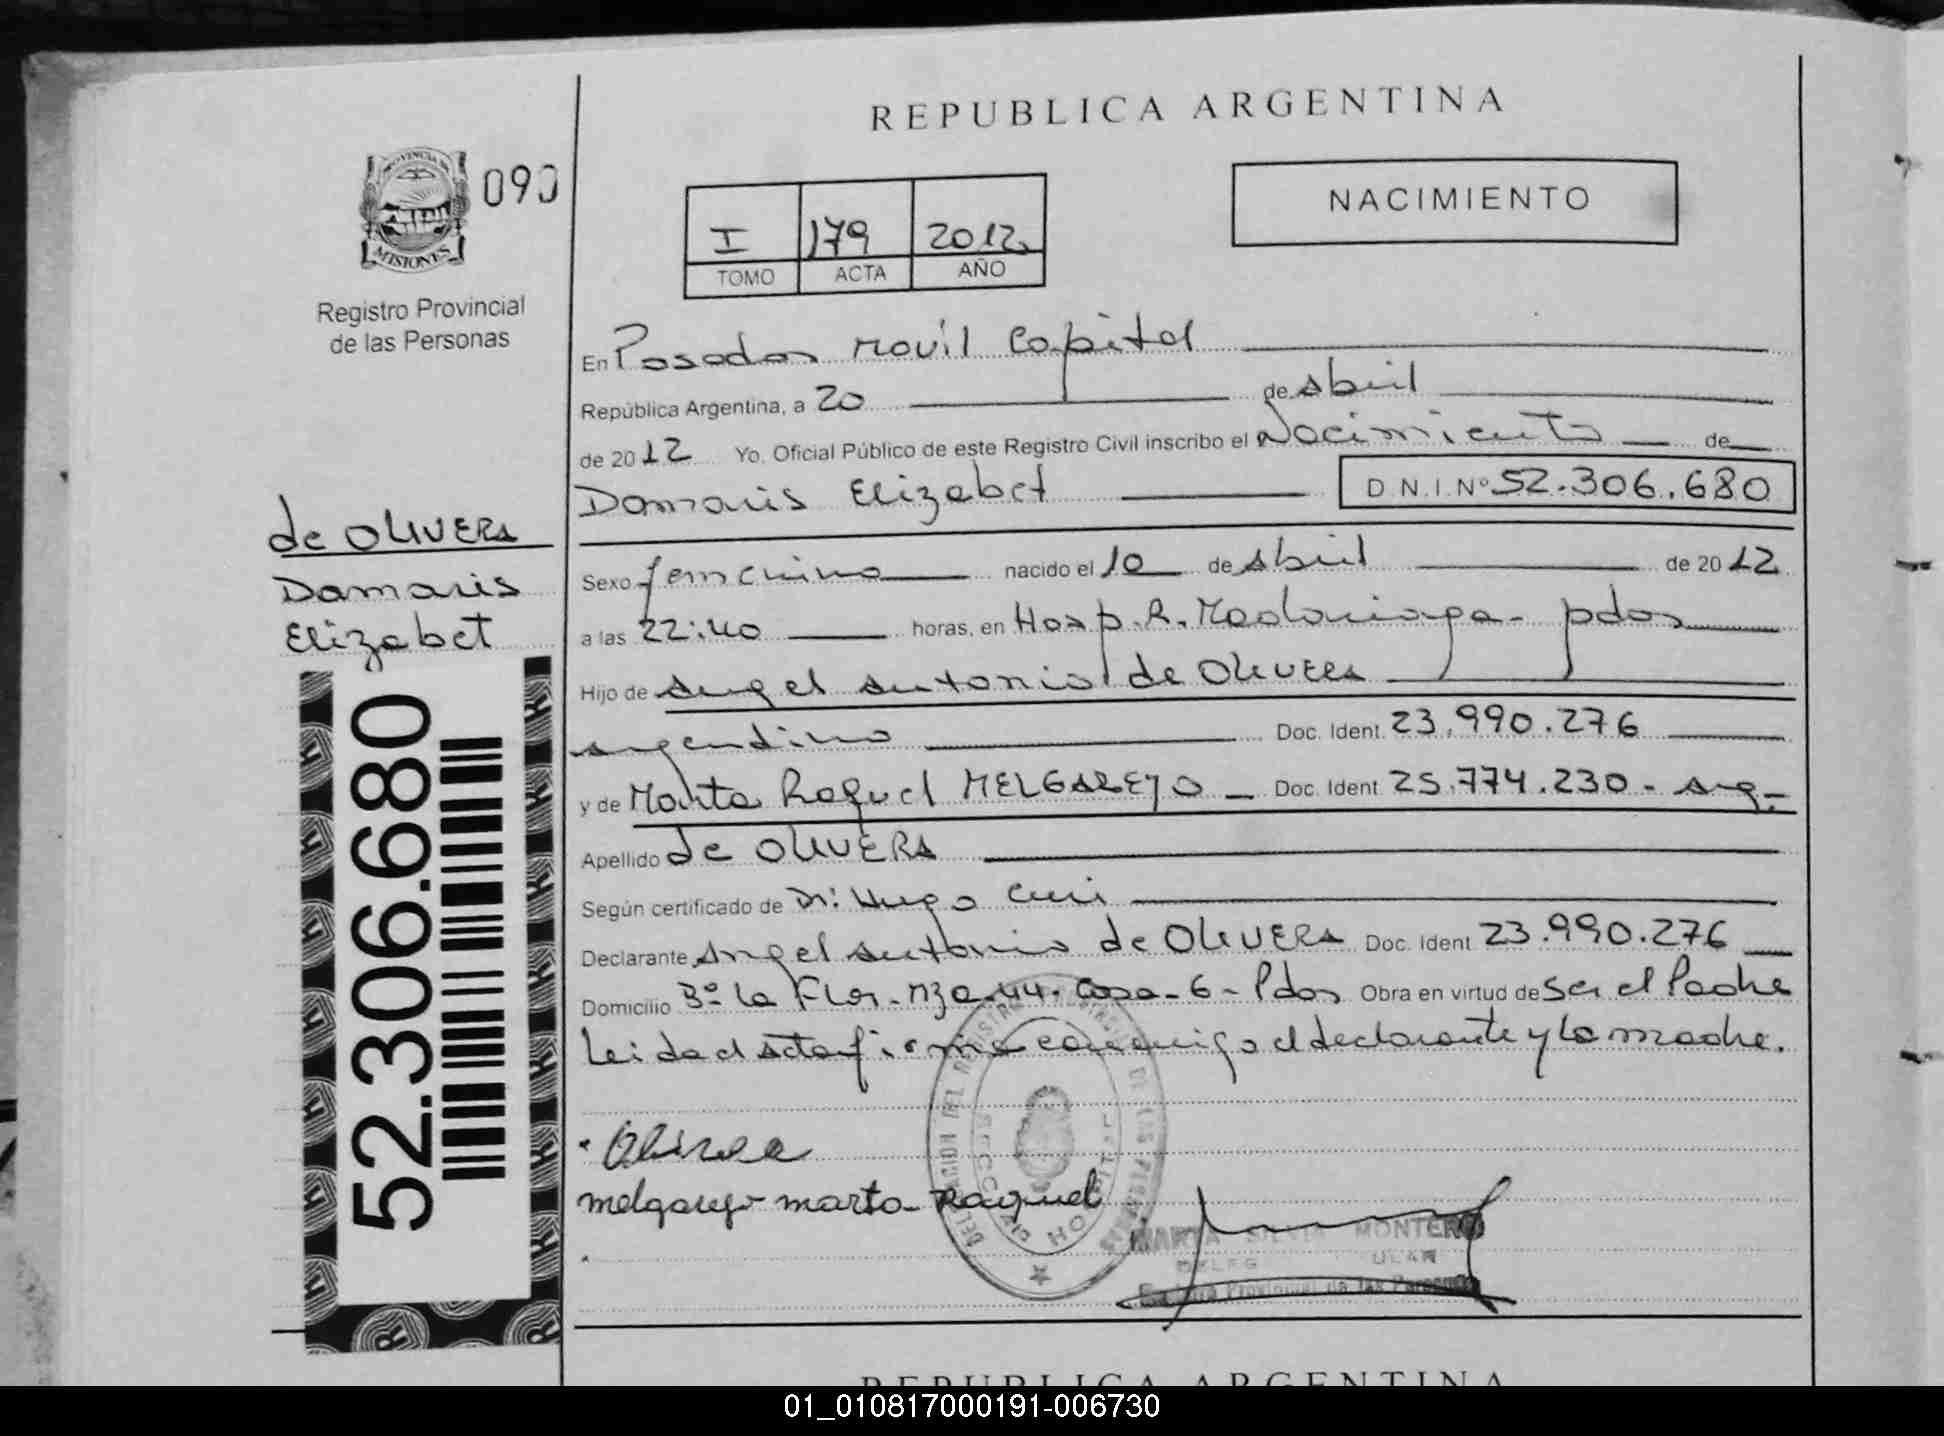 REPUBLICA ARGENTINA
PROVINCIA DE
MISIONES
090
Registro Provincial
de las Personas
I 179 2012
TOMO ACTA AÑO
NACIMIENTO
En Posadas Movil Capital
República Argentina, a 20 de Abril
de 2012 Yo, Oficial Público de este Registro Civil inscribo el Nacimiento de
Damaris Elizabet D.N.I.Nº 52.306.680
de OLIVERA
Damaris
Elizabet
52.306.680
Sexo femenino nacido el 10 de Abril de 2012
a las 22:40 horas, en Hosp. R. Madariaga - pdas
Hijo de Angel Antonio de OLIVERA
argentino Doc. Ident. 23.990.276
y de Marta Raquel MELGAREJO Doc. Ident 25.774.230 - Arg.
Apellido de OLIVERA
Según certificado de Dr: Hugo
Declarante Angel Antonio de OLIVERA Doc. Ident 23.990.276
Domicilio Bº La Flor - Mza - 44 - Casa - 6 - Pdas Obra en virtud de Ser el Padre
Leida el Acta firma conmigo el declarante y la madre.
melgarejo marta Raquel
MARTA SILVIA MONTERO
Provincial de las Personas
REPUBLICA ARGENTINA
01_010817000191-006730